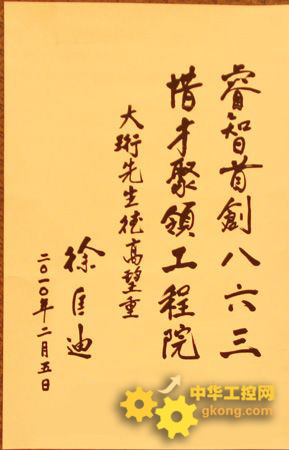 睿智首創八六三
惜才聚領工程院
大珩先生德高望重
徐匡迪
二〇一〇年二月五日
中华工控网
gkong.com